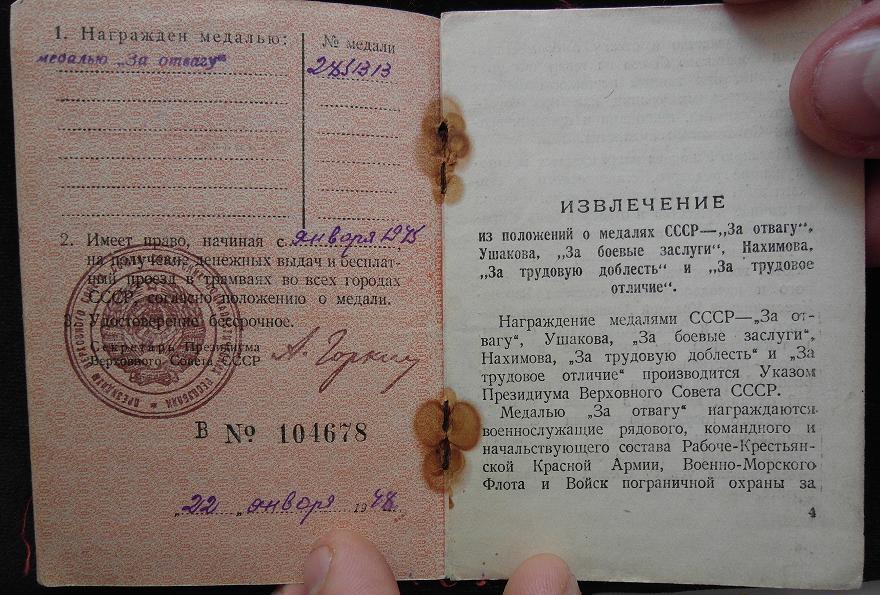 1. Награжден медалью:
№ медали
медалью „За отвагу“
2. Имеет право, начиная с января 1945
на получение денежных выдач и бесплат-
ный проезд в трамваях во всех городах
СССР, согласно положению о медали.
3. Удостоверение бессрочное.
Секретарь Президиума
Верховного Совета СССР
А. Горкин
В № 104678
„22 „ января 1948.
ИЗВЛЕЧЕНИЕ
из положений о медалях СССР—„За отвагу“,
Ушакова, „За боевые заслуги“, Нахимова,
„За трудовую доблесть“ и „За трудовое
отличие“.
Награждение медалями СССР—„За от-
вагу“, Ушакова, „За боевые заслуги“,
Нахимова, „За трудовую доблесть“ и „За
трудовое отличие“ производится Указом
Президиума Верховного Совета СССР.
Медалью „За отвагу“ награждаются
военнослужащие рядового, командного и
начальствующего состава Рабоче-Крестьян-
ской Красной Армии, Военно-Морского
Флота и Войск пограничной охраны за
4